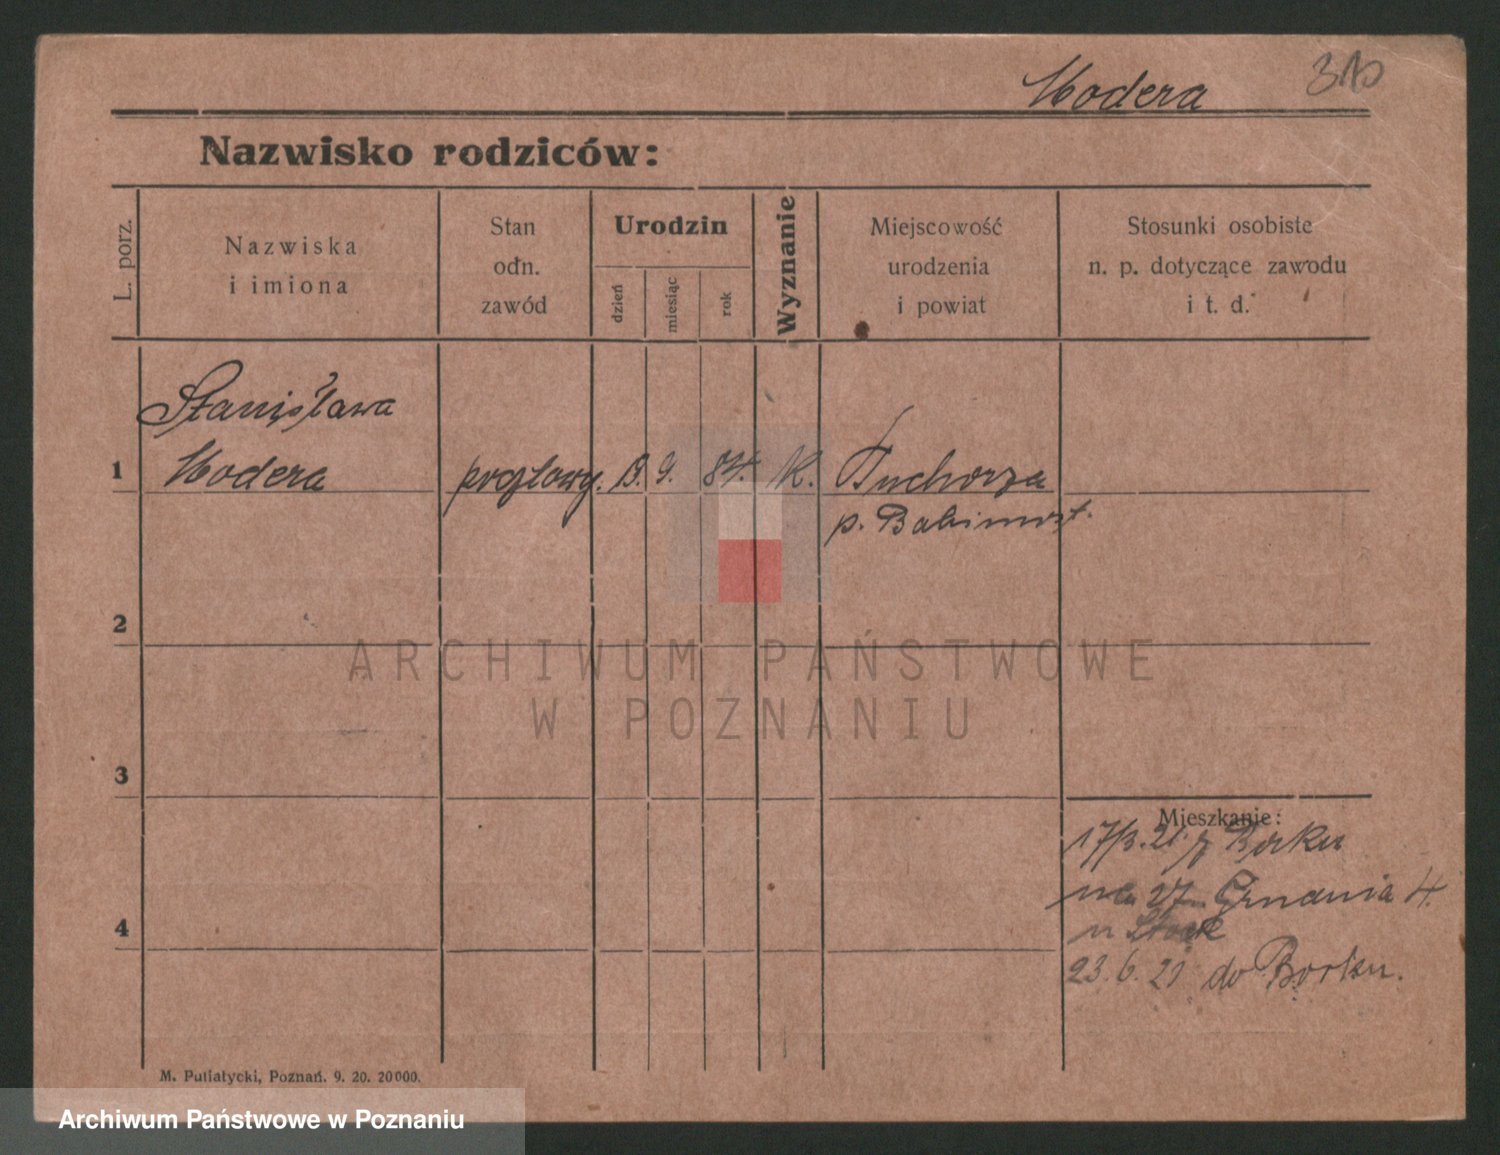 Modera 310
Nazwisko rodziców:
L. porz.
Nazwiska
i imiona
Stan
odn.
zawód
Urodzin
dzień
miesiąc
rok
Wyznanie
Miejscowość
urodzenia
i powiat
Stosunki osobiste
n. p. dotyczące zawodu
i t. d.
Stanisława
1 Modera
13. 9. 84. K. Tuchorza
p. Babimost.
2
ARCHIWUM PAŃSTWOWE
W POZNANIU
3
Mieszkanie:
z Borku
na 27 Grudnia 4.
4
23.6.21 do Borku.
M. Putiatycki, Poznań. 9. 20. 20000.
Archiwum Państwowe w Poznaniu